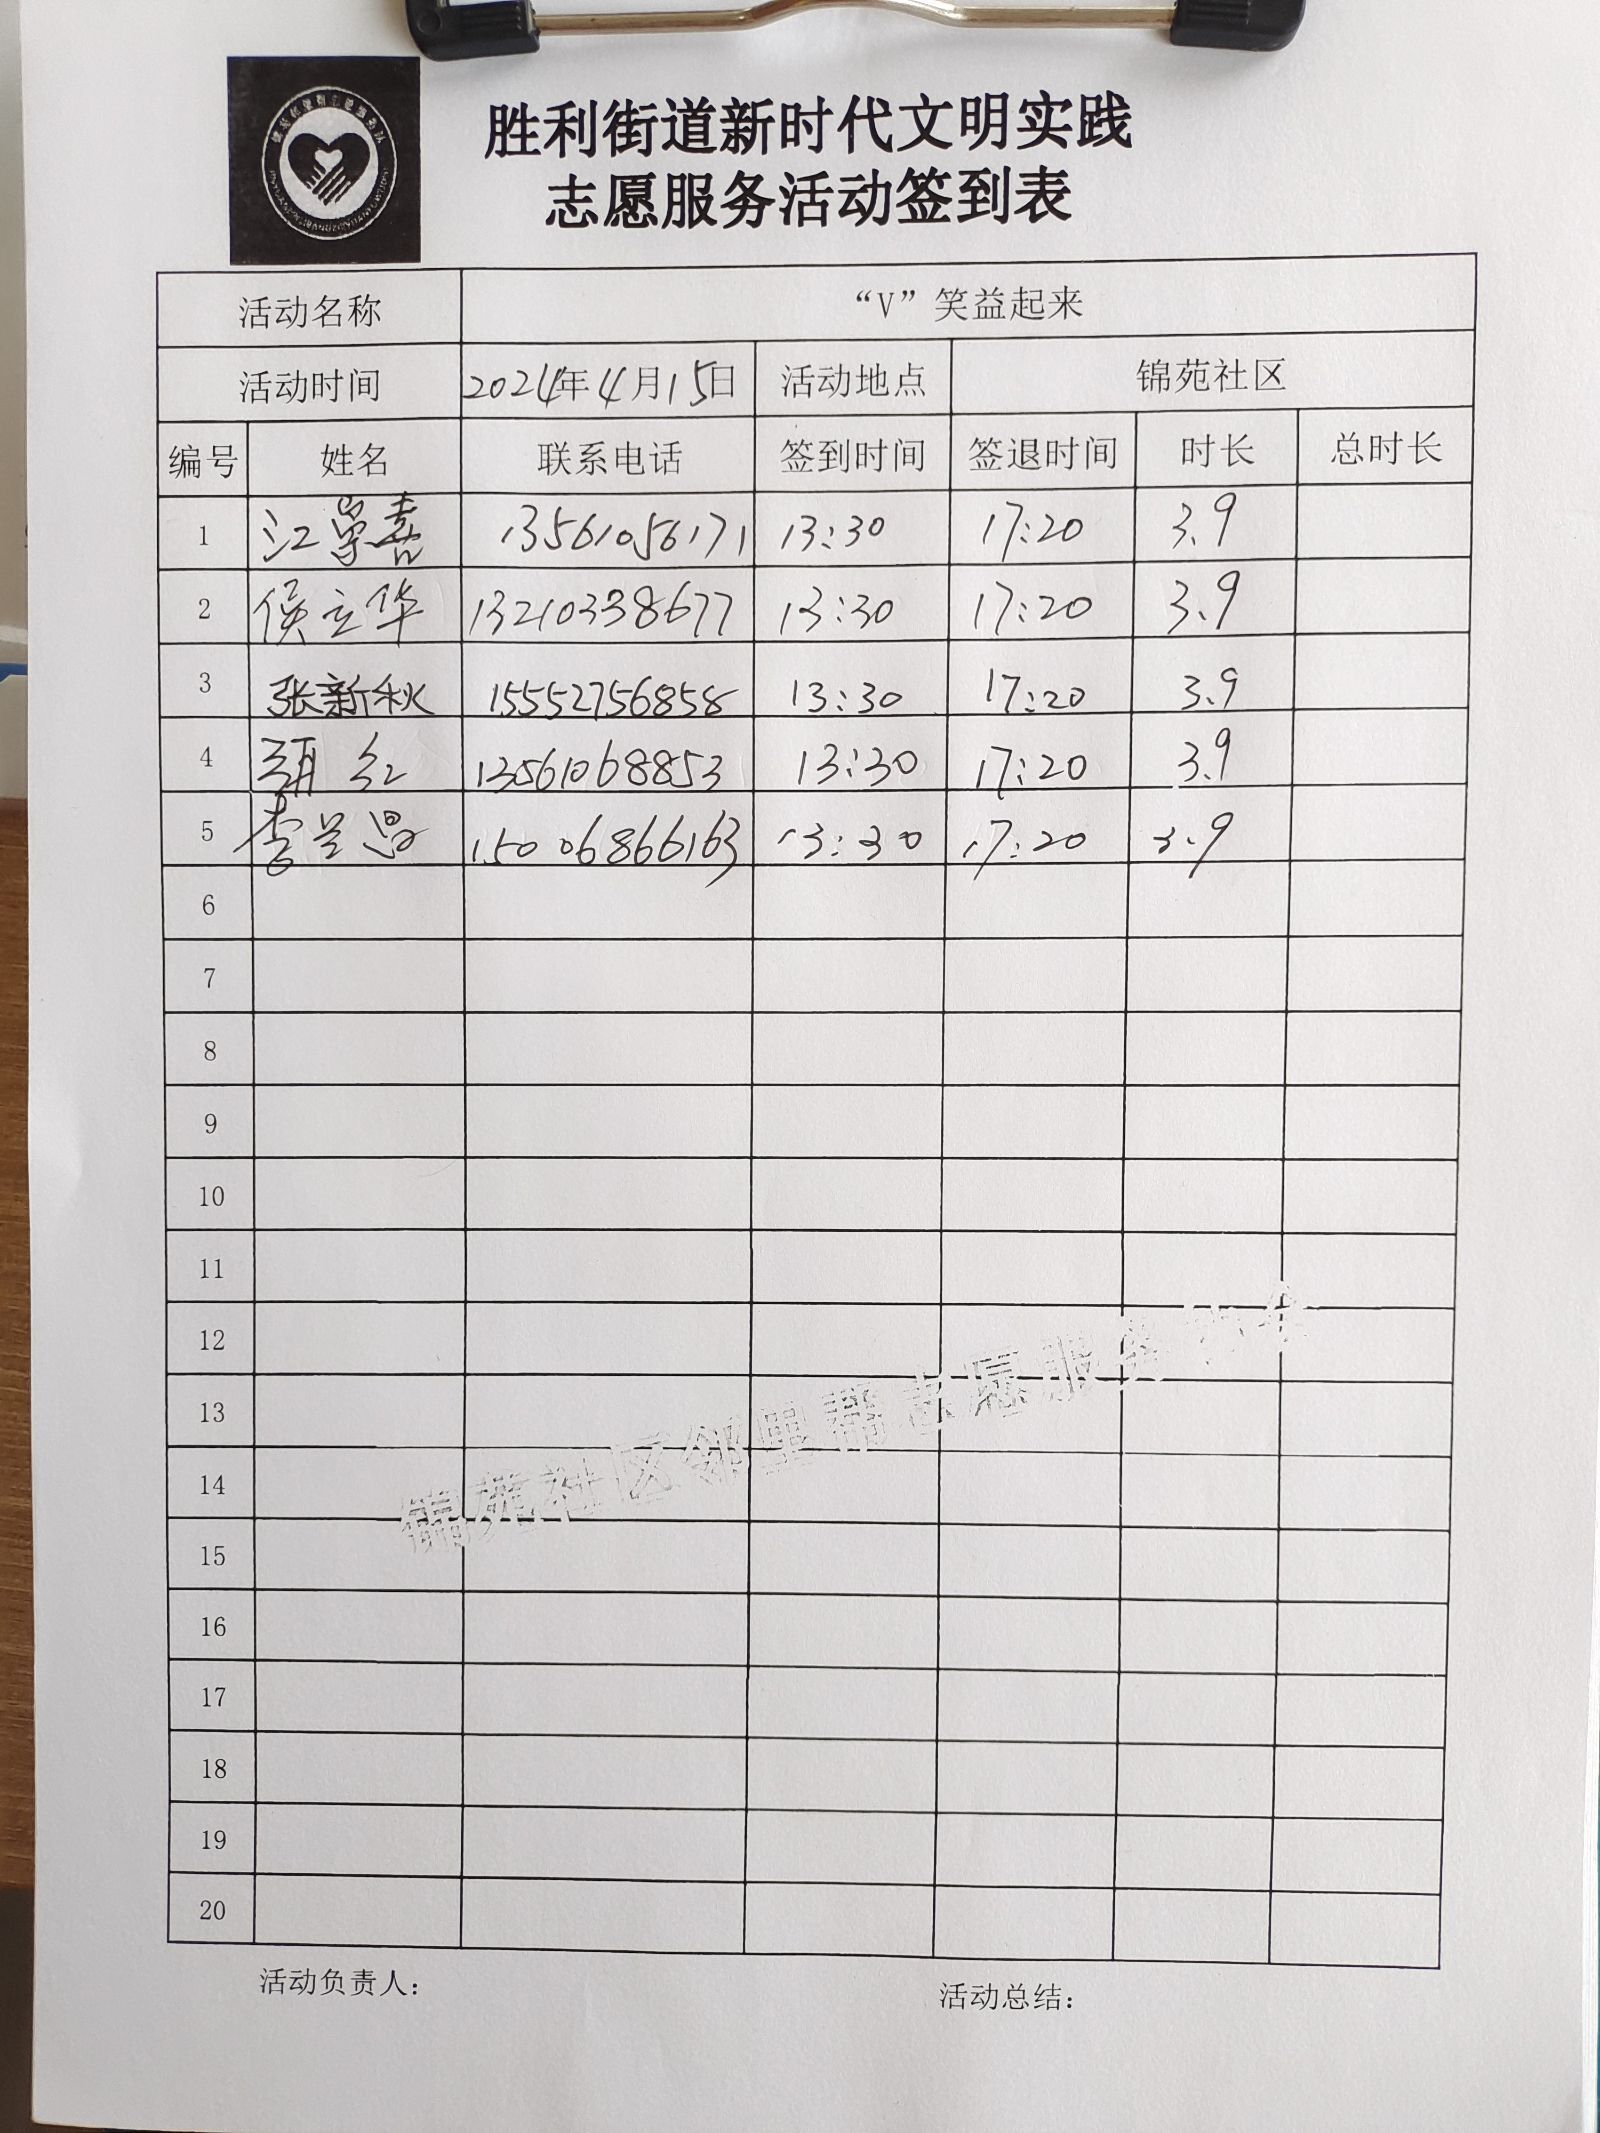 胜利街道新时代文明实践
志愿服务活动签到表
活动名称 “V”笑益起来
活动时间 2024年4月15日 活动地点 锦苑社区
编号 姓名 联系电话 签到时间 签退时间 时长 总时长
1 江崇喜 13561056171 13:30 17:20 3.9
2 侯立华 13210338677 13:30 17:20 3.9
3 张新秋 15552756858 13:30 17:20 3.9
4 红 13561068853 13:30 17:20 3.9
5 李兰 15006866163 13:30 17:20 3.9
6
7
8
9
10
11
12
13
14
15
16
17
18
19
20
锦苑社区邻里帮志愿服务
活动负责人： 活动总结：